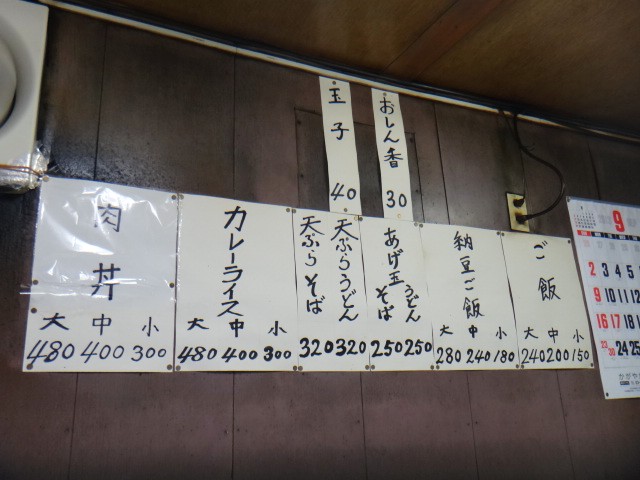 玉子
40
おしん香
30
肉丼
大 中 小
480 400 300
カレーライス
大 中 小
480 400 300
天ぷらうどん
天ぷらそば
320 320
あげ玉
うどん
そば
250 250
納豆ご飯
大 中 小
280 240 180
ご飯
大 中 小
240 200 150
9
2 3
9 10
16 17
24 25